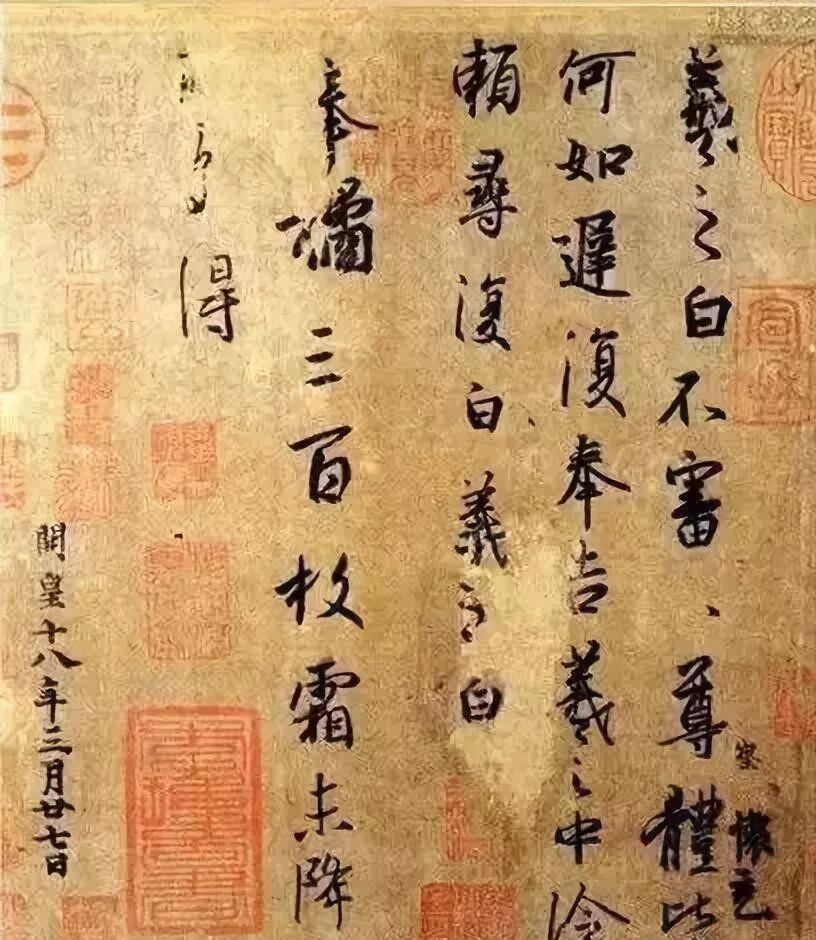 羲之白不審、尊體比
察 懷充
何如遲復奉告羲之中冷
賴尋復白羲之白
奉橘三百枚霜未降
多得
開皇十八年三月廿七日